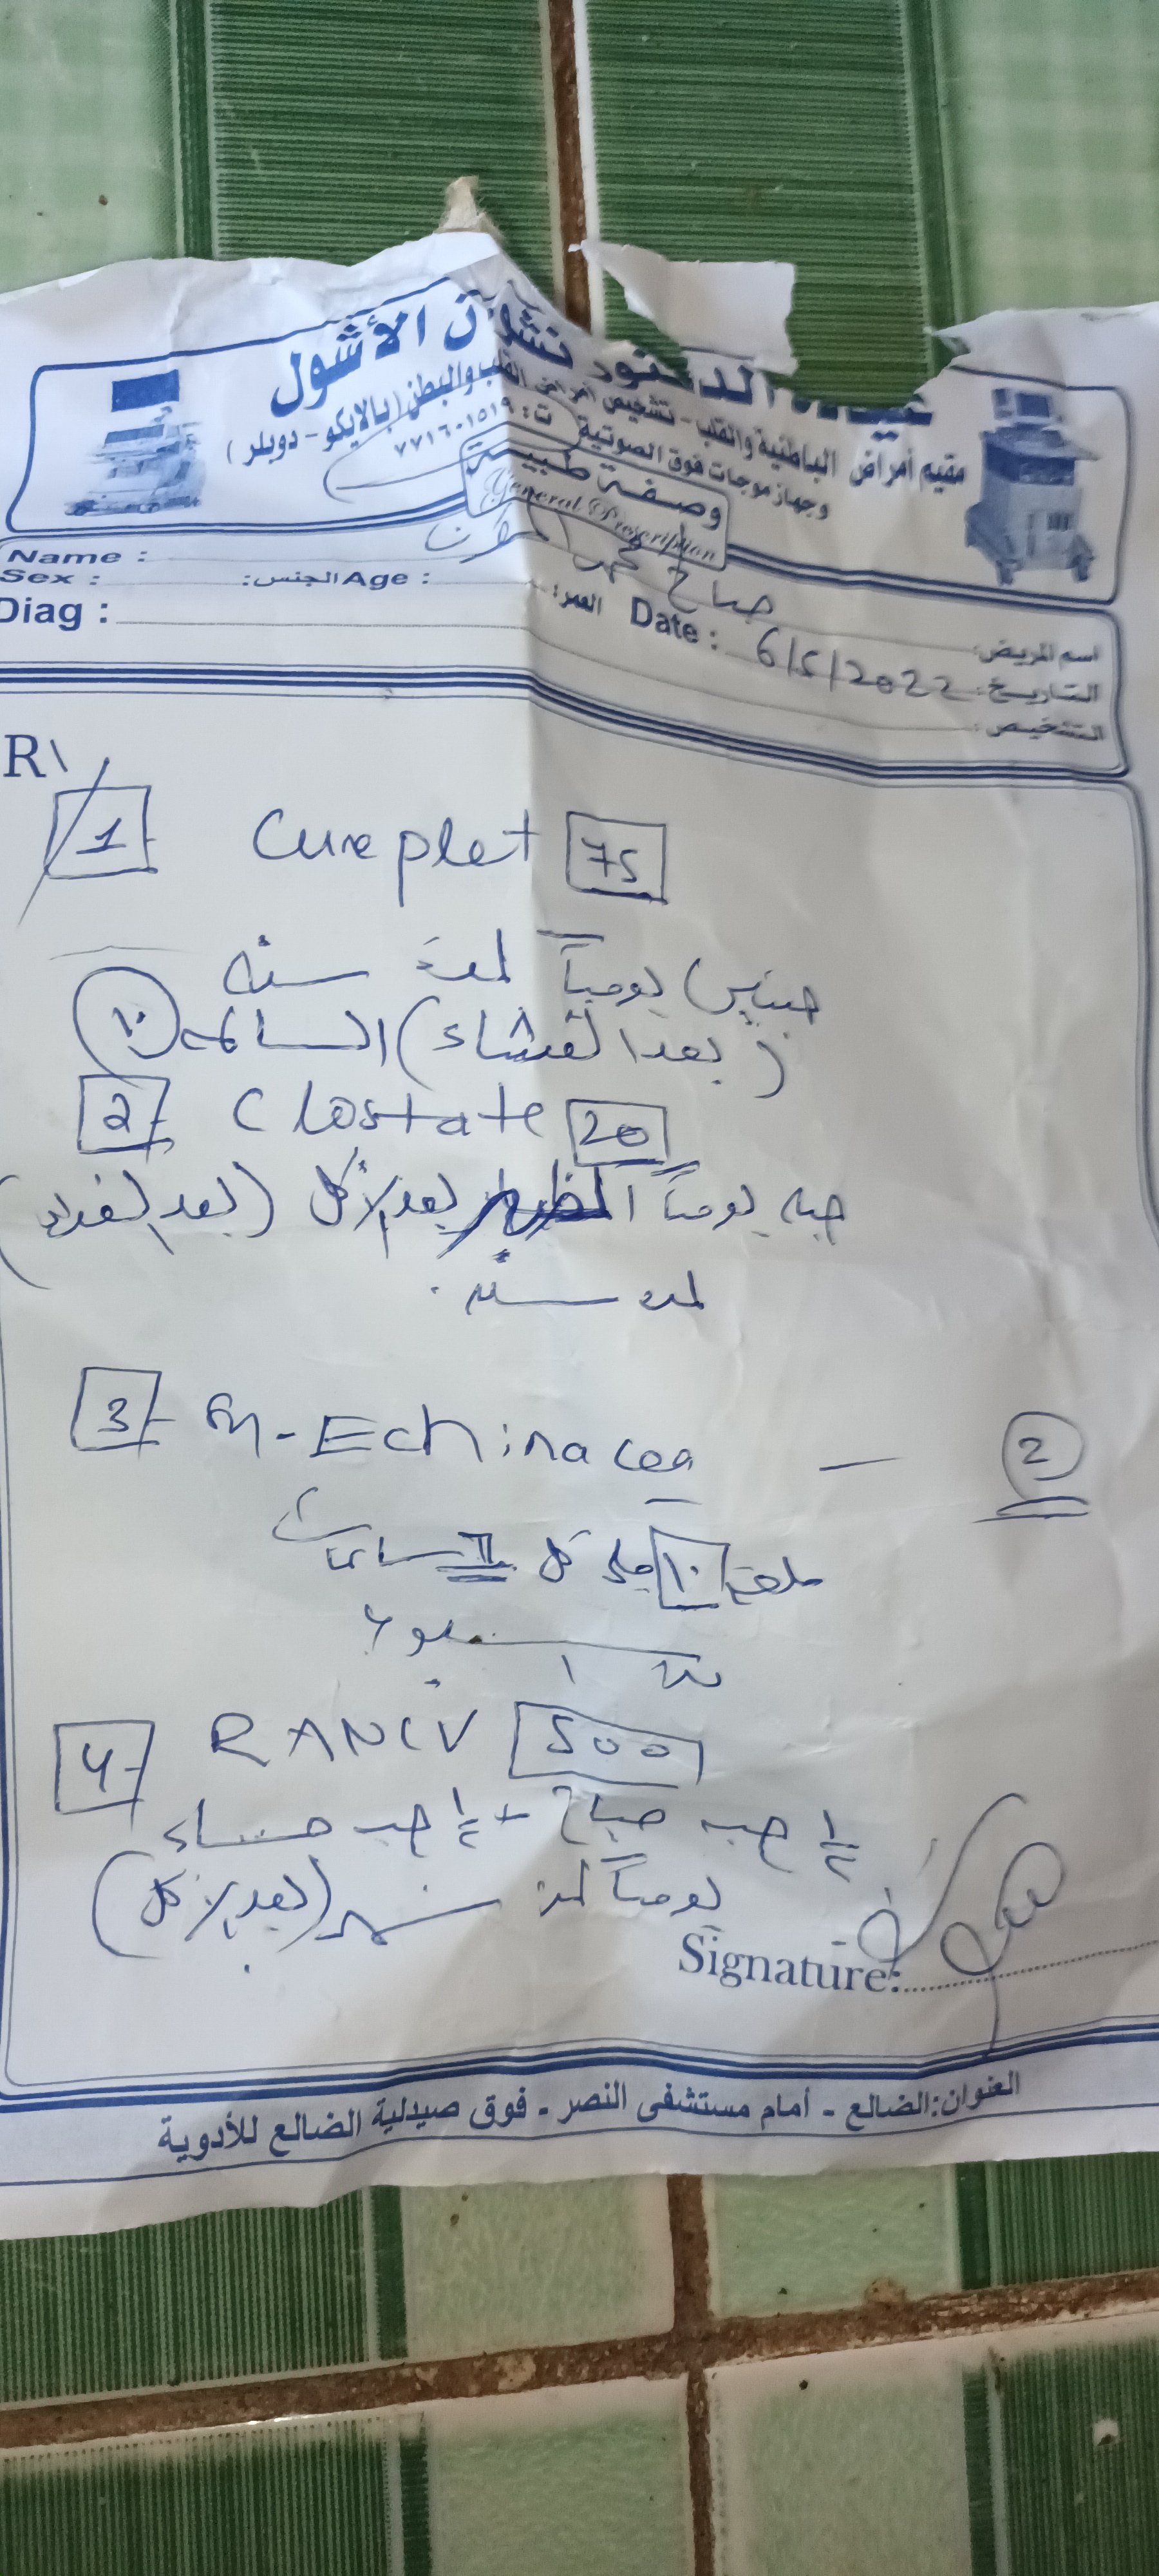 عيادة الدكتور نشوان الأشول
مقيم أمراض الباطنية والقلب - تشخيص أمراض القلب والبطن (بالايكو - دوبلر)
وجهاز موجات فوق الصوتية ت: ٧٧١٦٠١٥١٩
وصفة طبية
General Prescription
Name : صباح محمد اسم المريض:
Sex : الجنس: Age : العمر: Date : 6/5/2022 التاريخ:
Diag : التشخيص:
R\
1- Cureplet 75
حبتين يومياً لمدة سنه
(بعد العشاء) الساعه ١٠
2- Clostate 20
حبه يومياً الظهر بعد الأكل (بعد الغداء)
لمده سنه.
3- Echinacea — 2
ملعقة ١٠ ملي كل ٦ ساعات
4- RANCV 500
½ حبه صباح + ½ حبه مساء
يومياً لمدة شهر (بعد الأكل)
Signature:
العنوان: الضالع - أمام مستشفى النصر - فوق صيدلية الضالع للأدوية